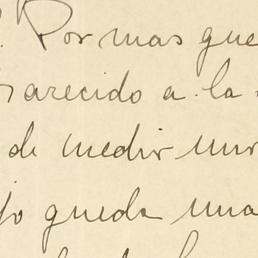 Por mas que
parecido a la
de medir
queda una